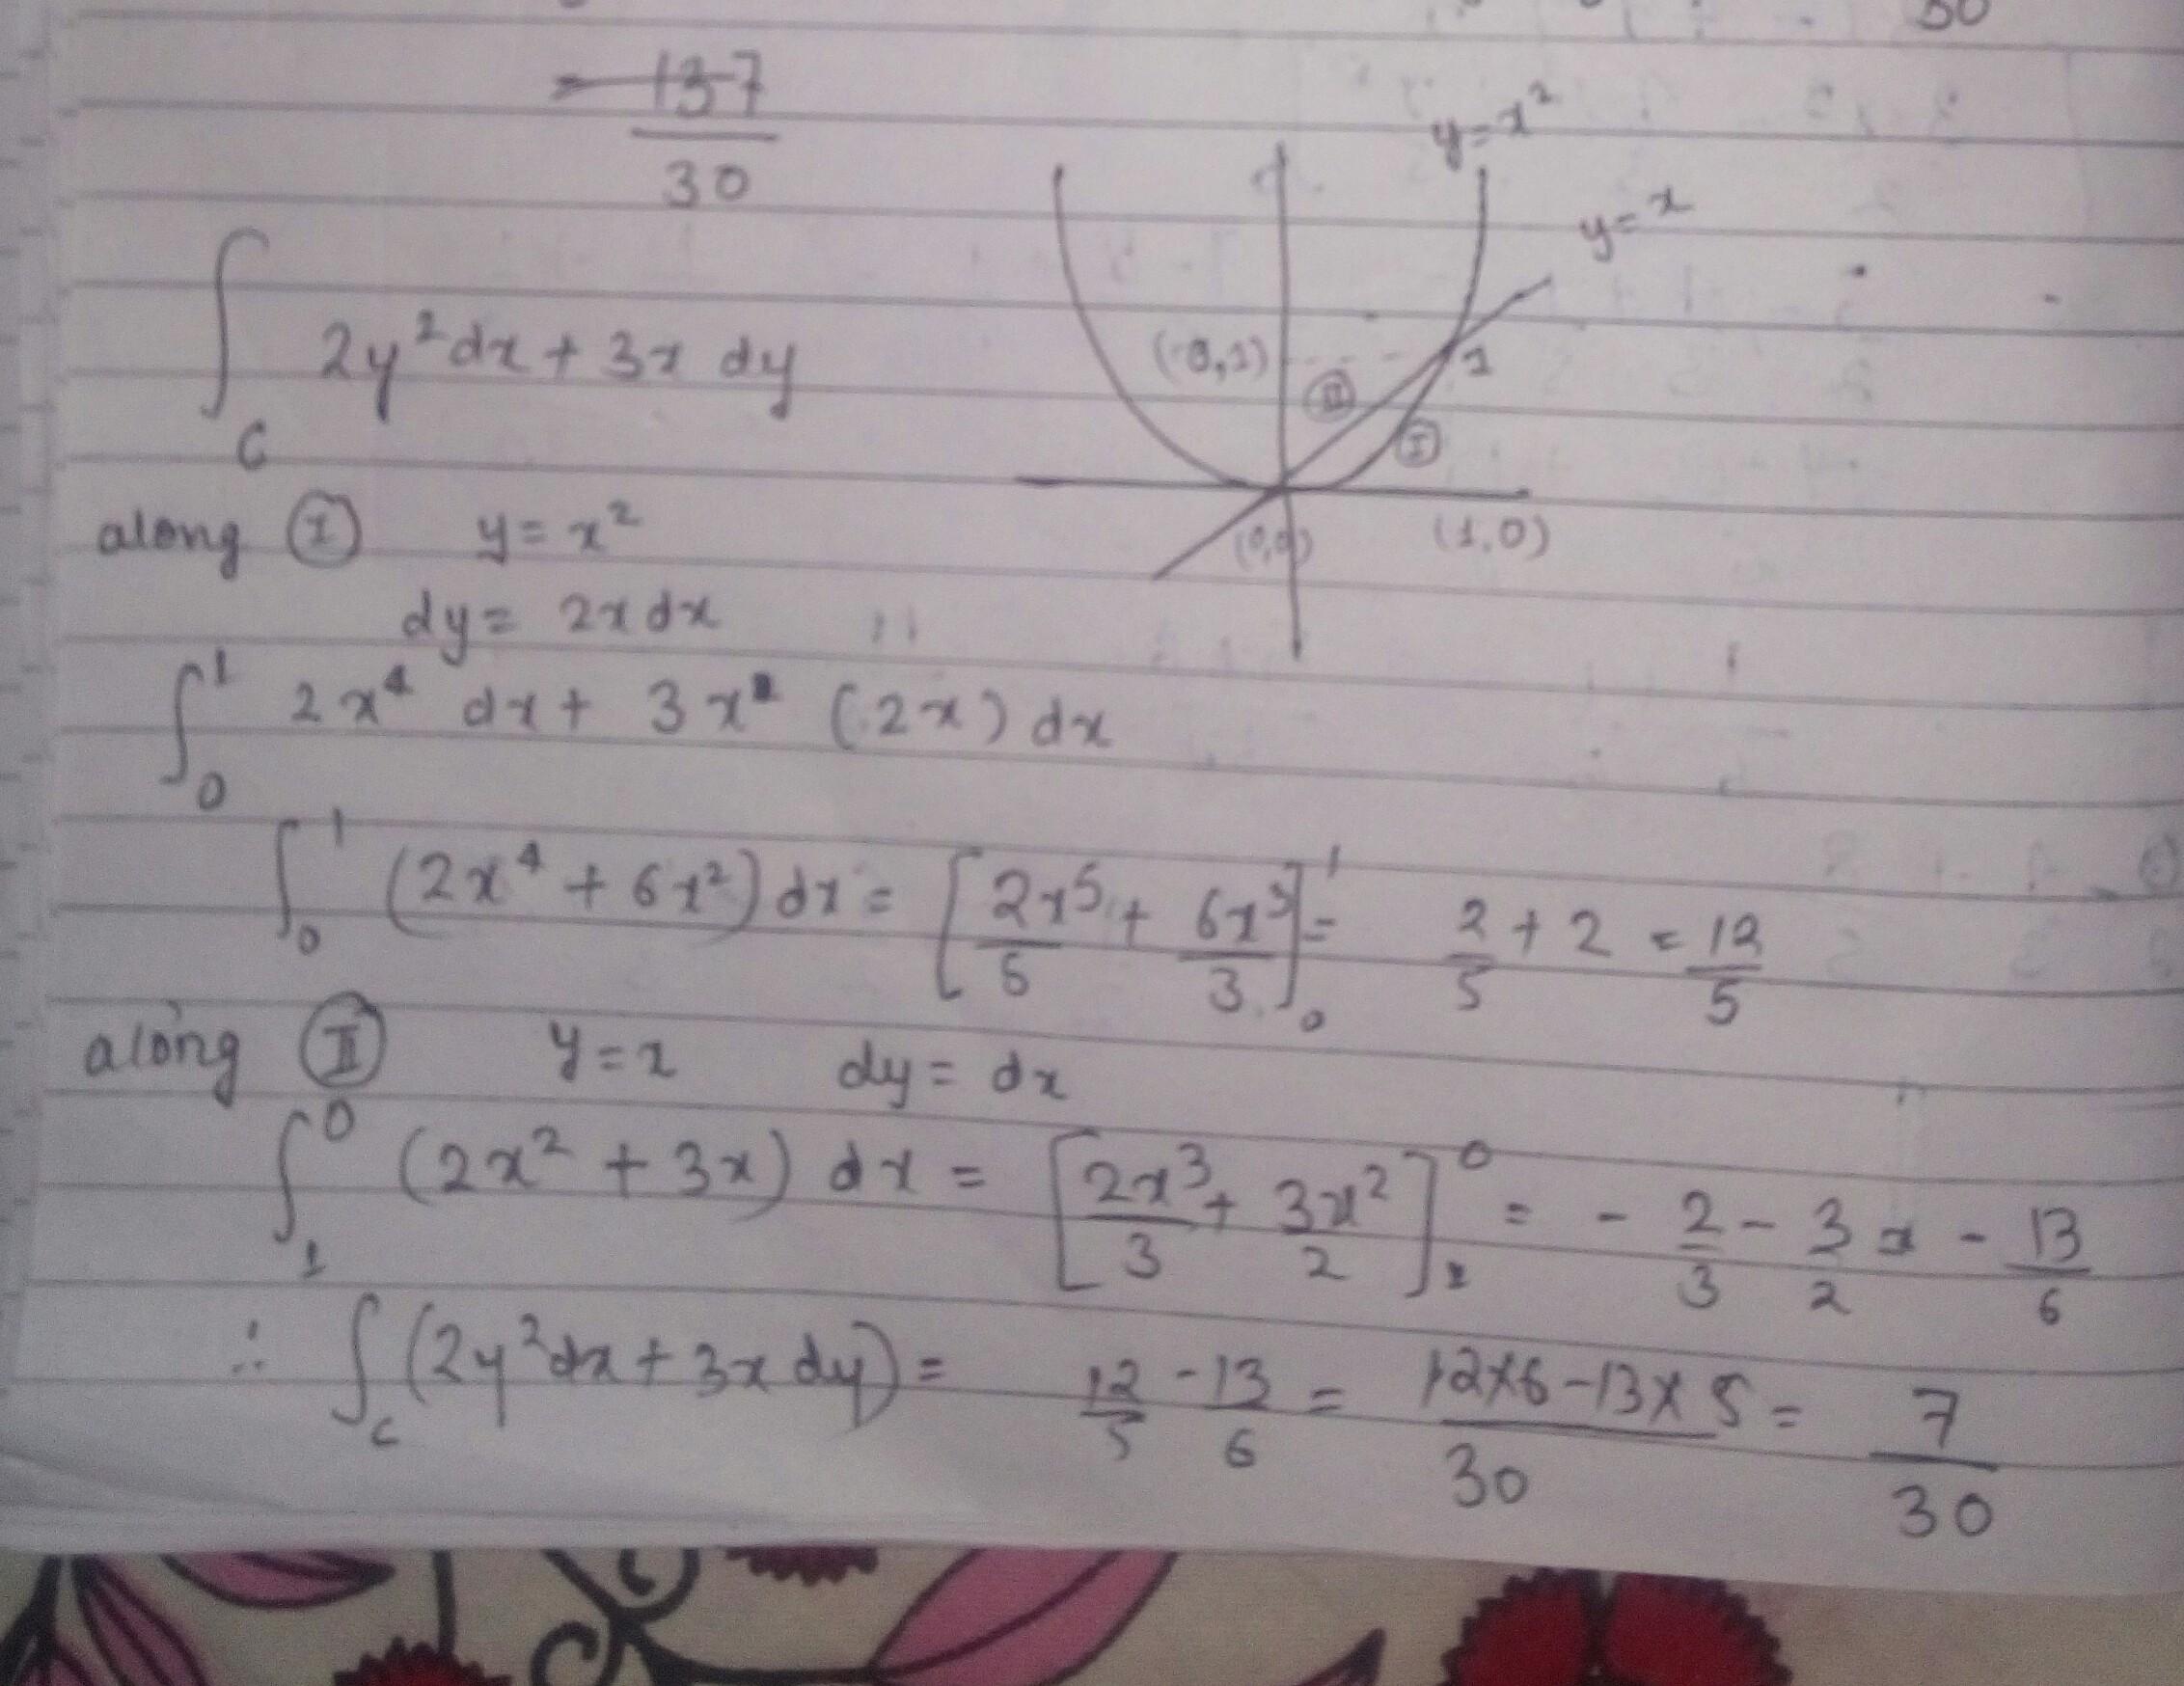 30
= 137/30
y=x²
y=x
∫_C 2y²dx + 3x dy
(0,1)
1
II
I
(0,0)
(1,0)
along (I) y = x²
dy = 2x dx
∫_0^1 2x⁴ dx + 3x (2x) dx
∫_0^1 (2x⁴ + 6x²) dx = [2x⁵/5 + 6x³/3]_0^1 = 2/5 + 2 = 12/5
along (II) y = x dy = dx
∫_1^0 (2x² + 3x) dx = [2x³/3 + 3x²/2]_1^0 = - 2/3 - 3/2 = - 13/6
∴ ∫_C (2y²dx + 3x dy) = 12/5 - 13/6 = (12×6 - 13×5)/30 = 7/30